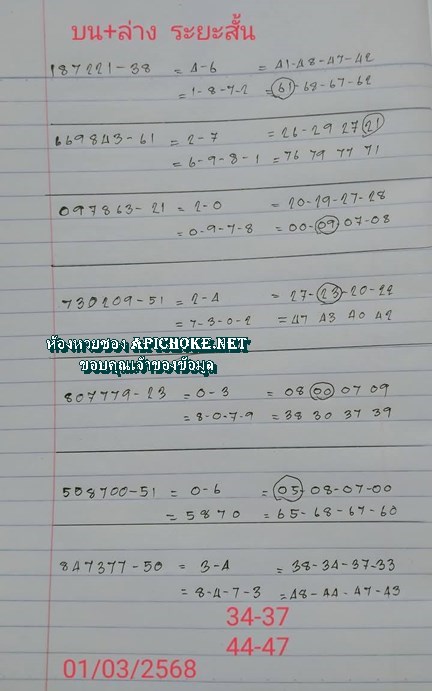 บน+ล่าง ระยะสั้น
187221-38 = 4-6 = 41-48-47-42
= 1-8-7-2 = 61-68-67-62
669843-61 = 2-7 = 26-29 27 21
= 6-9-8-1 = 76 79 77 71
097863-21 = 2-0 = 20-29-27-28
= 0-9-7-8 = 00-09 07-08
730209-51 = 2-4 = 27-23-20-22
= 7-3-0-2 = 47 43 40 42
ห้องหวยซอง APICHOKE.NET
ขอบคุณเจ้าของข้อมูล
807779-23 = 0-3 = 08 00 07 09
= 8-0-7-9 = 38 30 37 39
508700-51 = 0-6 = 05-08-07-00
= 5870 = 65-68-67-60
847377-50 = 3-4 = 38-34-37-33
= 8-4-7-3 = 48-44-47-43
34-37
44-47
01/03/2568